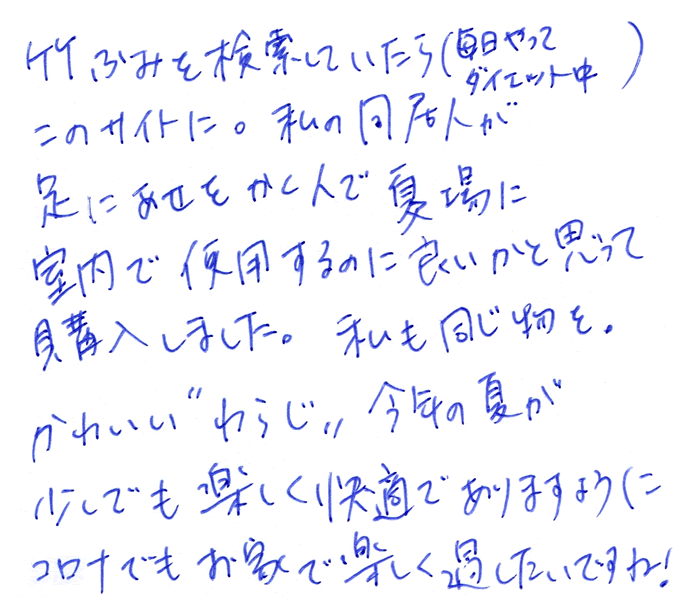 竹ふみを検索していたら(毎日やってダイエット中)
このサイトに。私の同居人が
足にあせをかく人で夏場に
室内で使用するのに良いかと思って
購入しました。私も同じ物を。
かわいい"わらじ"今年の夏が
少しでも楽しく快適でありますように
コロナでもお家で楽しく過したいですね!